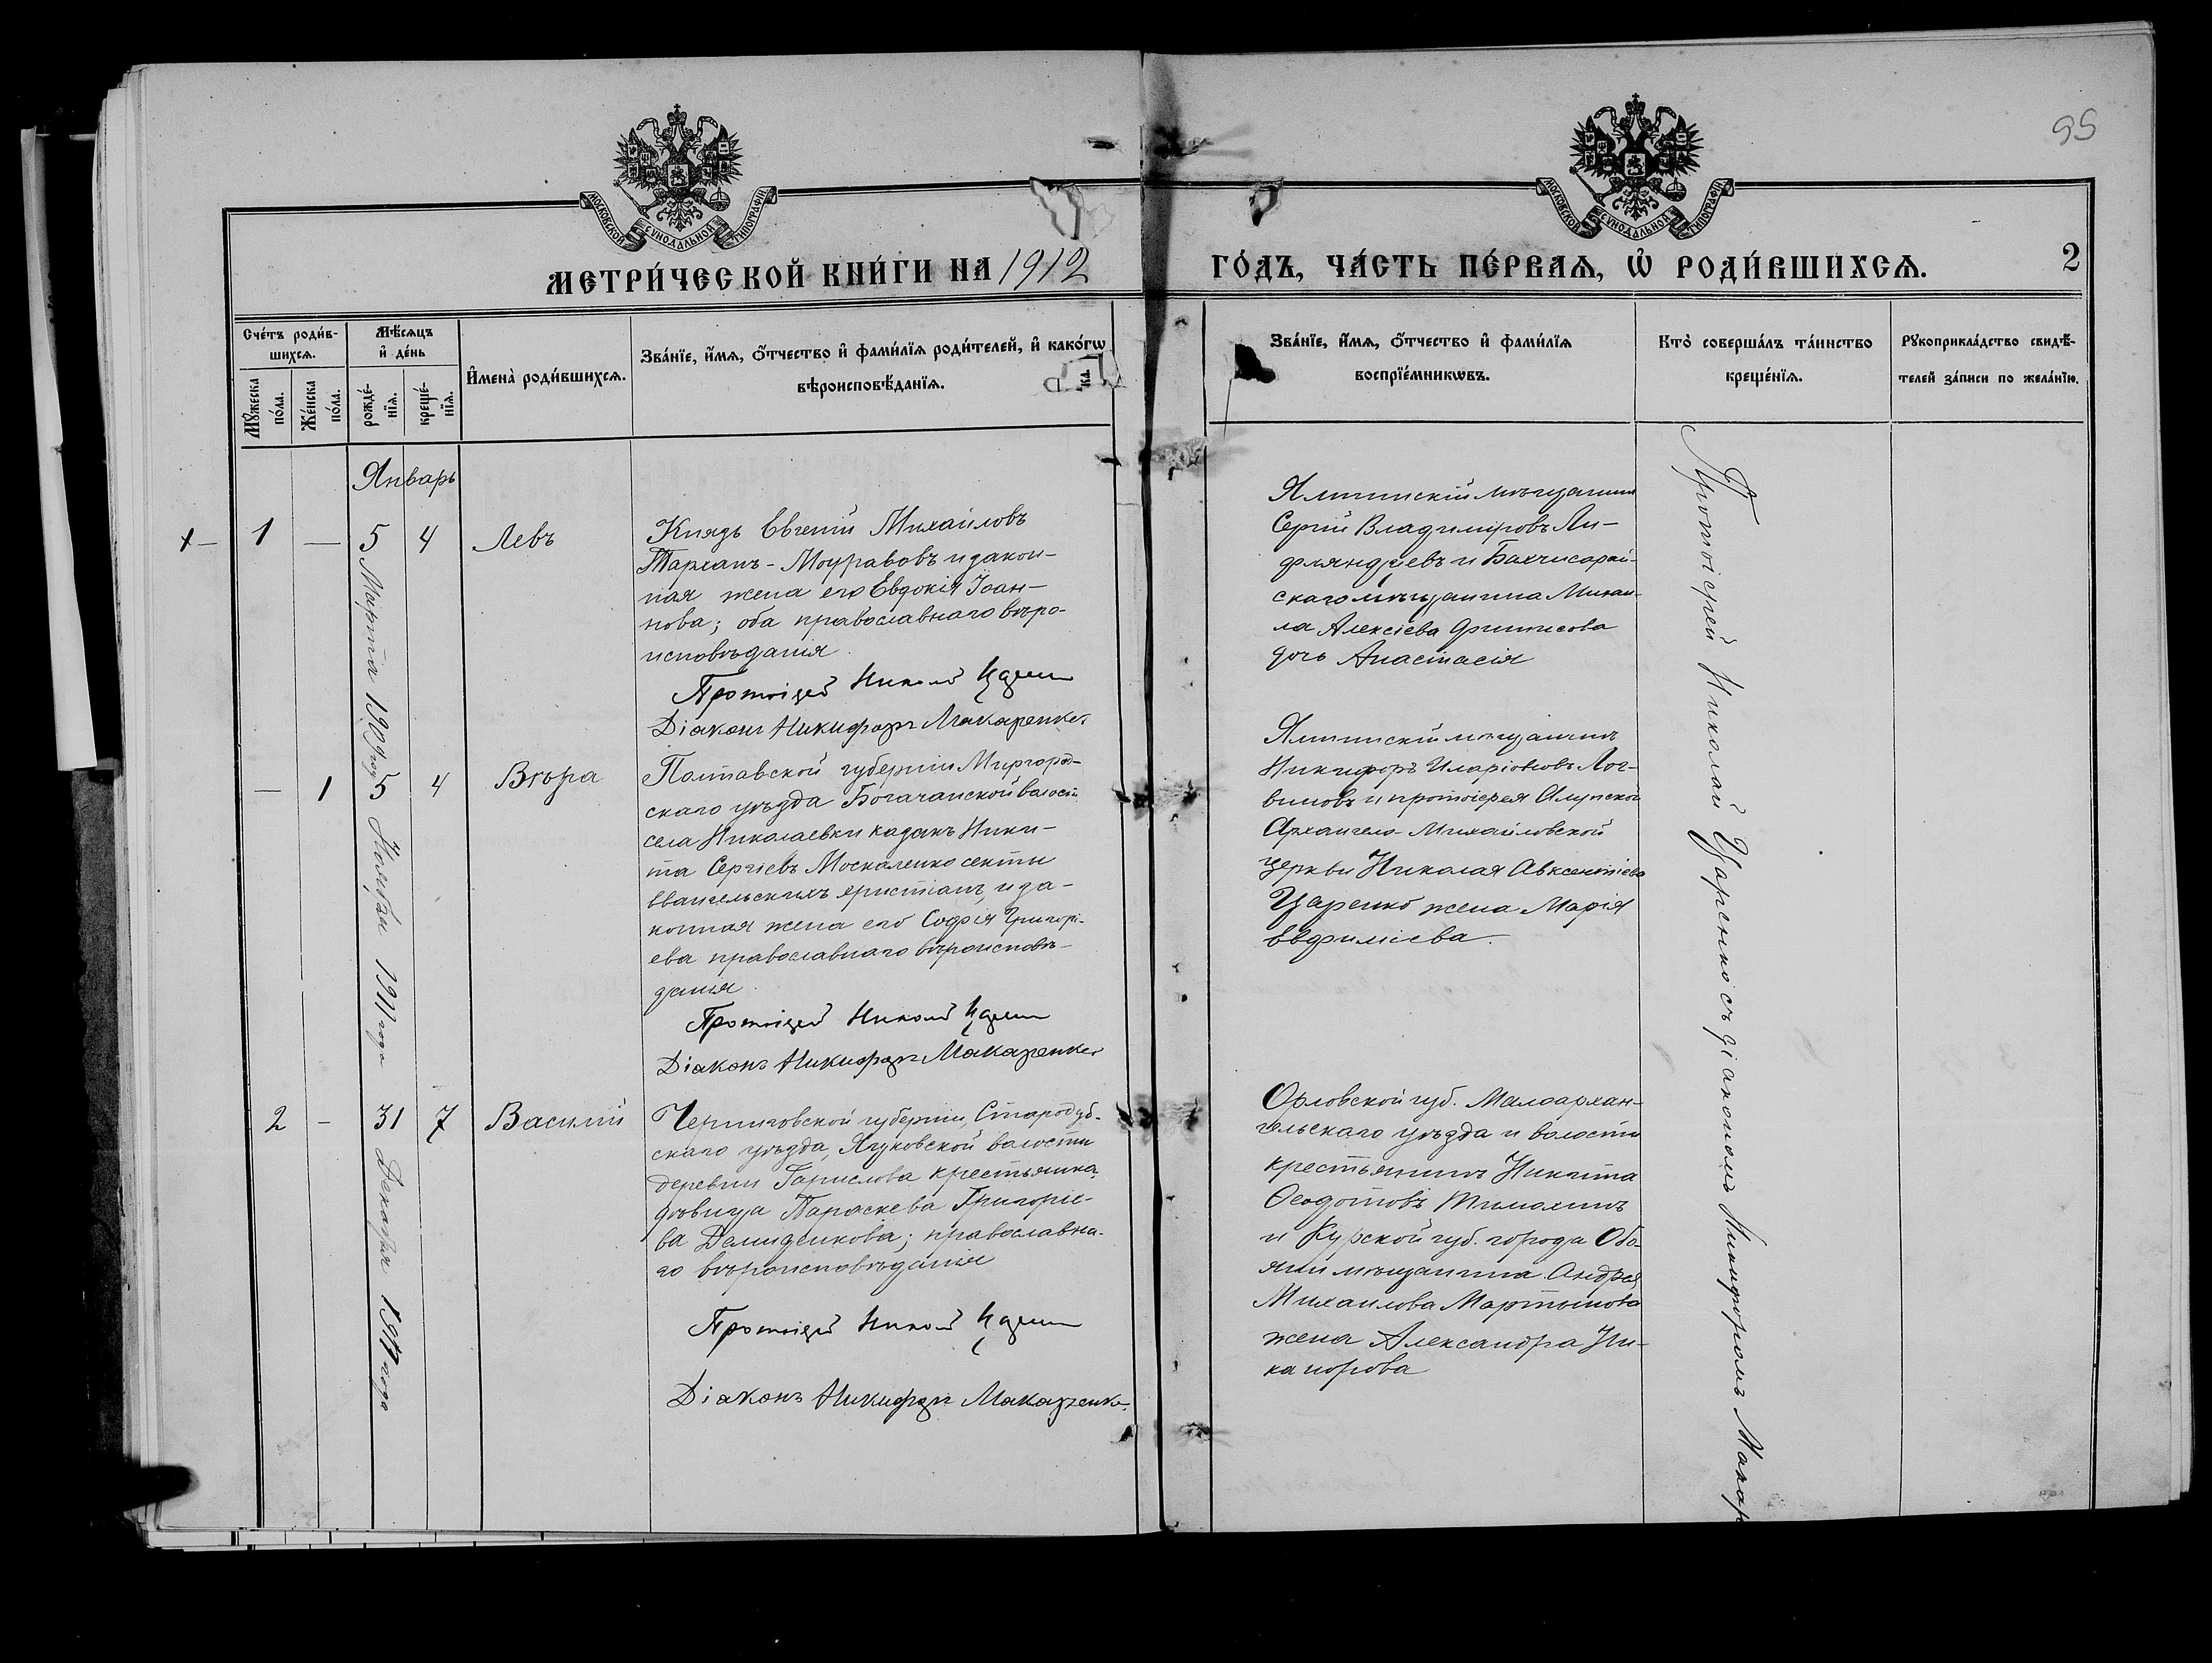 95
МОСКОВСКОЙ СУНОДАЛЬНОЙ ТИПОГРАФІИ
МОСКОВСКОЙ СУНОДАЛЬНОЙ ТИПОГРАФІИ
МЕТРИ́ЧЕСКОЙ КНИ́ГИ НА 1912
ГО́ДЪ, ЧА́СТЬ ПЕ́РВАѦ, Ѡ҆ РОДИ́ВШИХСѦ.
2
Сче́тъ роди́в-
шихсѧ.
Мꙋ́жеска по́ла.
Же́нска по́ла.
Мѣ́сѧцъ
и҆ де́нь
рожде́-
нїѧ.
креще́-
нїѧ.
И҆мена̀ роди́вшихсѧ.
Зва́нїе, и҆́мѧ, ѻ҆́тчество и҆ фами́лїѧ роди́телей, и҆ како́гѡ
вѣроисповѣ́данїѧ.
Зва́нїе, и҆́мѧ, ѻ҆́тчество и҆ фами́лїѧ
воспрїе́мникѡвъ.
Кто̀ соверша́лъ та́инство
креще́нїѧ.
Рꙋкоприкла́дство свидѣ́-
телей за́писи по жела́нїю.
Январь
1 — 5 4 Левъ
Марта 1909 года
Князь Евгеній Михайловъ
Тархан-Моуравовъ и закон-
ная жена его Евдокія Іоан-
нова; оба православнаго вѣро-
исповѣданія
Протоіерей Николай Царенко
Діаконъ Никифоръ Макаренко
Ялтинскій мѣщанинъ
Сергій Владиміровъ Ли-
фляндчевъ и Бахчисарай-
скаго мѣщанина Михаи-
ла Алексіева
дочь Анастасія
— 1 5 4 Вѣра
Ноября 1911 года
Полтавской губерніи Миргород-
скаго уѣзда Богачанской волости
села Николаевки казакъ Ники-
та Сергіевъ Москаленко секты
евангельскихъ христіанъ, и за-
конная жена его Софія Григорі-
ева православнаго вѣроисповѣ-
данія
Протоіерей Николай Царенко
Діаконъ Никифоръ Макаренко
Ялтинскій мѣщанинъ
Никифоръ Иларіоновъ Лог-
виновъ и протоіерея Алупской
Архангело-Михайловской
церкви Николая Авксентіева
Царенко жена Марія
Евфиміева.
2 - 31 7 Василій
Декабря 1911 года
Черниговской губерніи, Стародуб-
скаго уѣзда, волости
деревни крестьянка,
дѣвица Параскева Григоріе-
ва Демиденкова; православна-
го вѣроисповѣданія
Протоіерей Николай Царенко
Діаконъ Никифоръ Макаренко.
Орловской губ. Малоархан-
гельскаго уѣзда и волости
крестьянинъ Никита
Ѳеодотовъ Тимохинъ
и Курской губ. города Обо-
яни мѣщанина Андрея
Михайлова Мартынова
жена Александра Ни-
канорова
Протоіерей Николай Царенко съ діакономъ Никифоромъ Макар